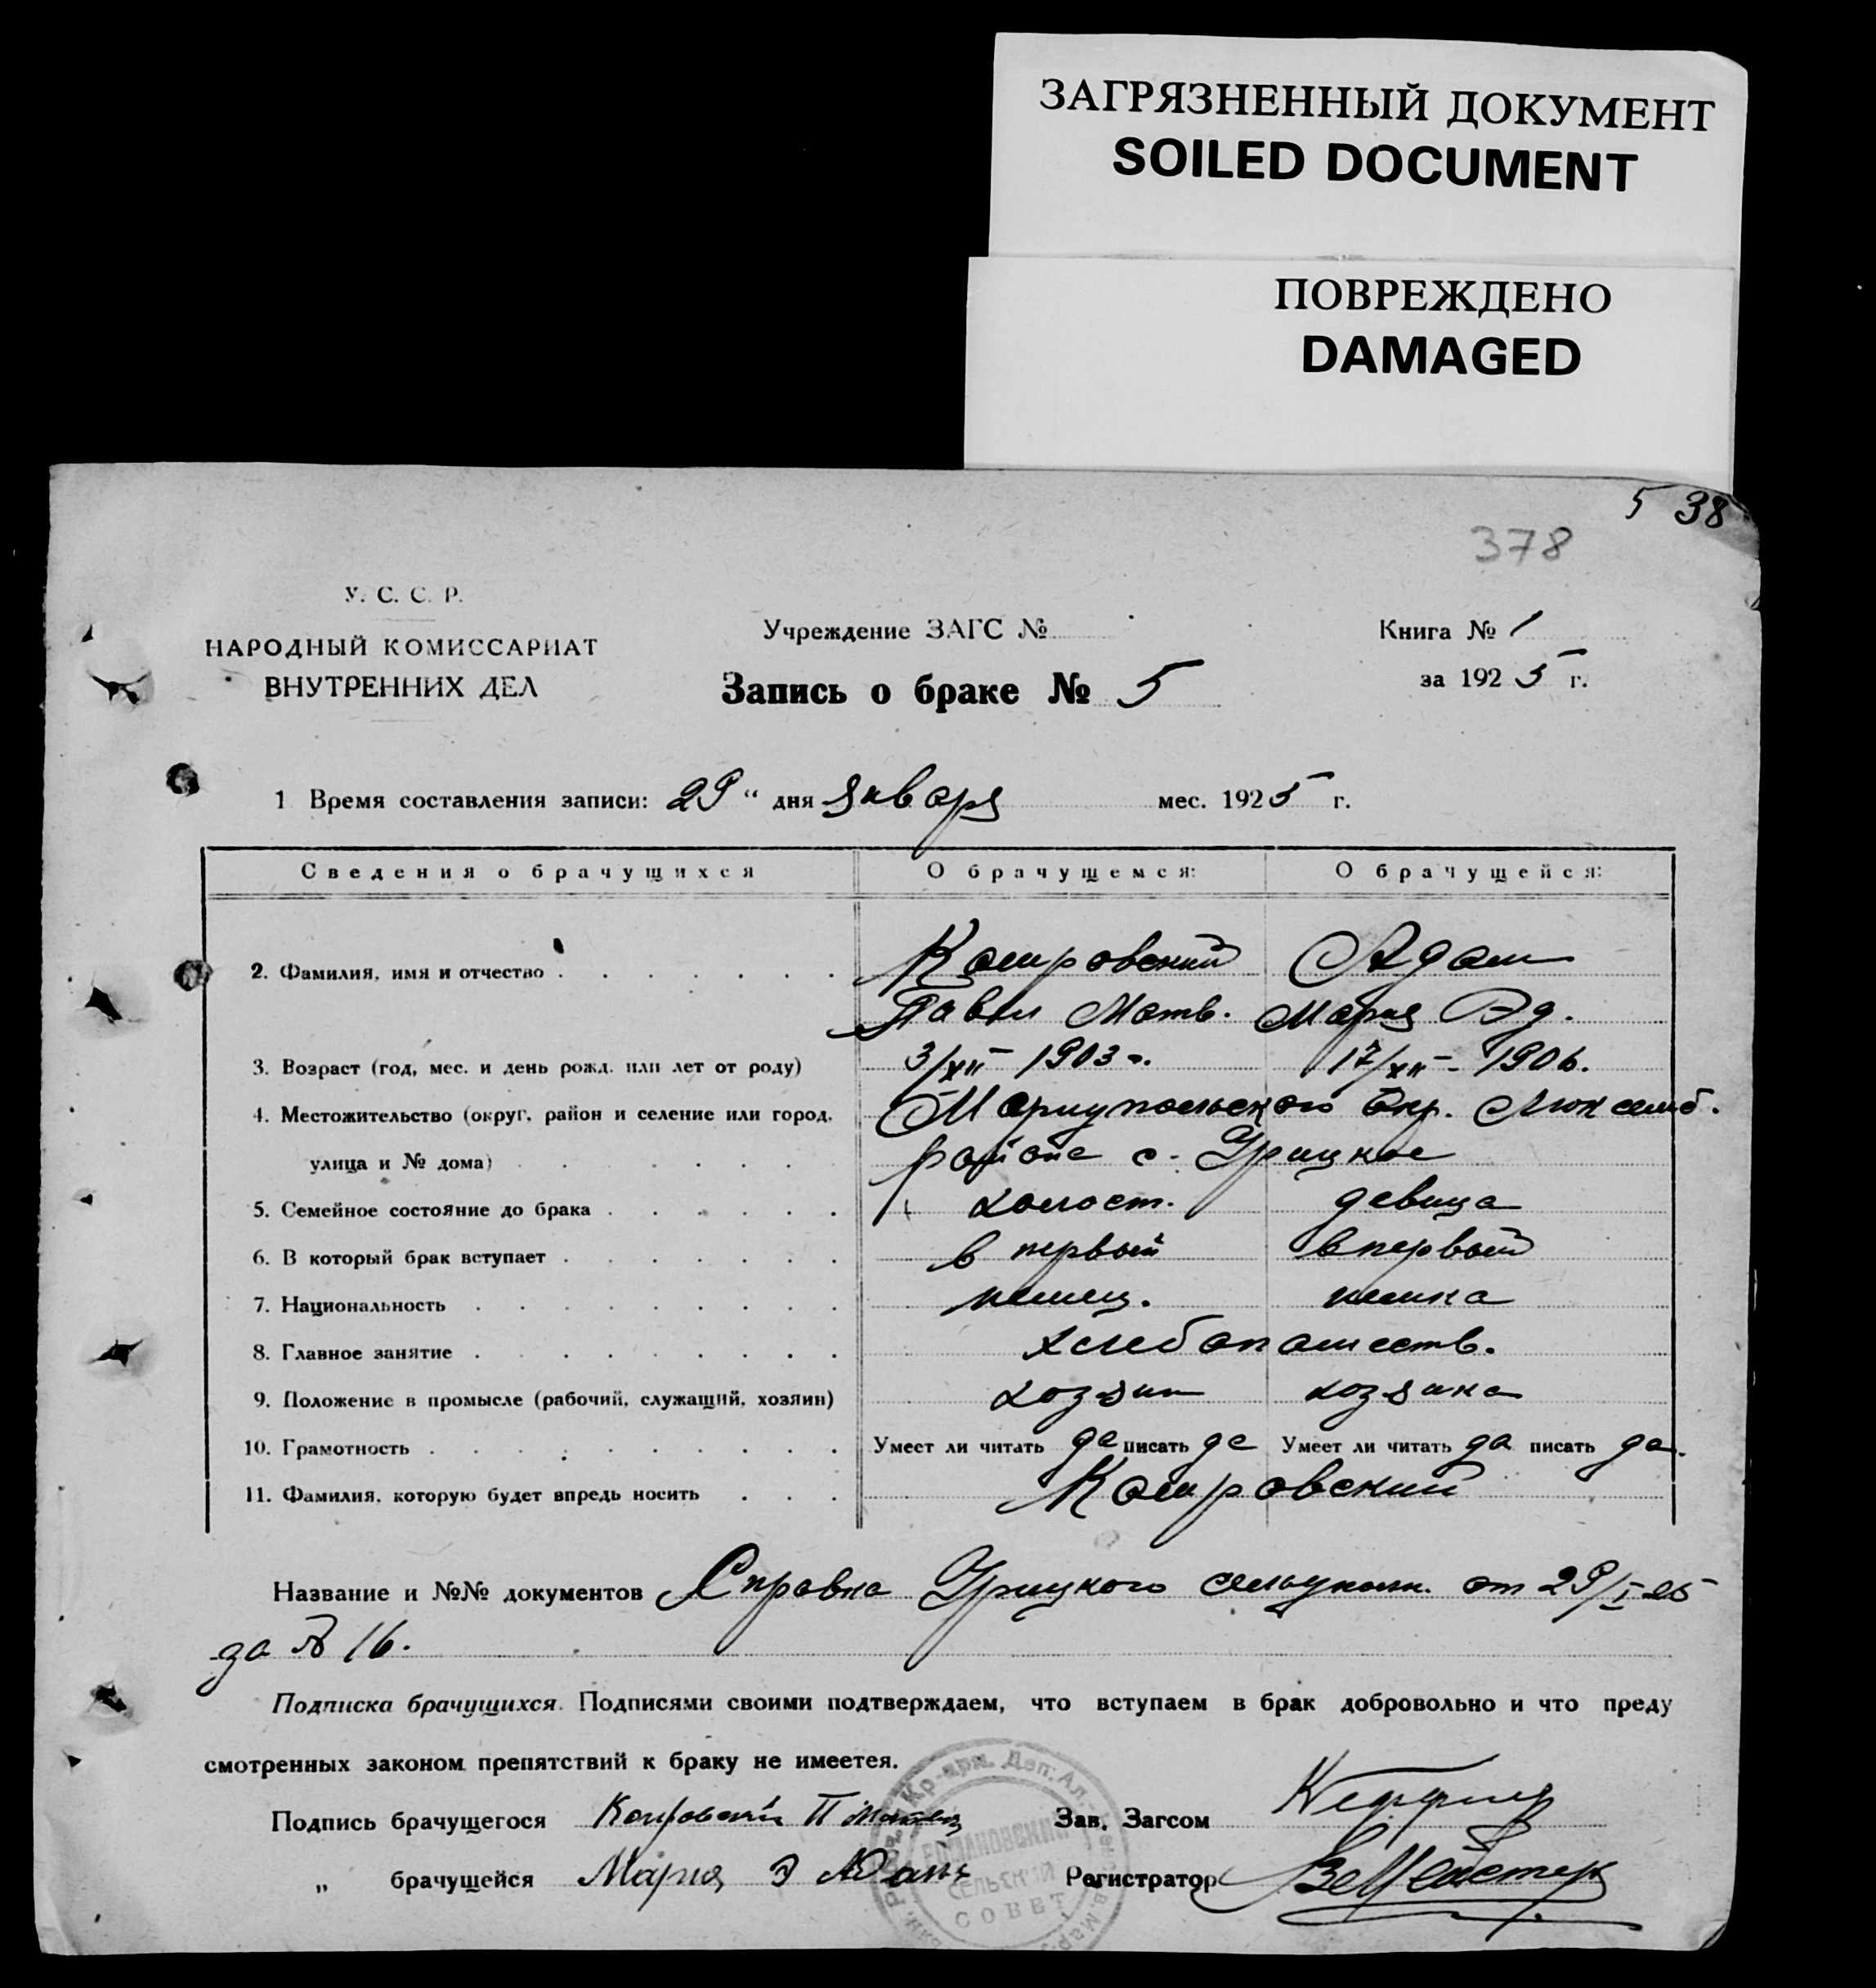 ЗАГРЯЗНЕННЫЙ ДОКУМЕНТ
SOILED DOCUMENT
ПОВРЕЖДЕНО
DAMAGED
5 38
378
У. С. С. Р.
НАРОДНЫЙ КОМИССАРИАТ
ВНУТРЕННИХ ДЕЛ
Учреждение ЗАГС №
Запись о браке № 5
Книга № 1
за 1925 г.
1 Время составления записи: 29 " дня января мес. 1925 г.
Сведения о брачущихся О брачущемся: О брачущейся:
2. Фамилия, имя и отчество Адам
Павел Матв. Мария Эд.
3. Возраст (год, мес. и день рожд. или лет от роду) 3/XII 1903 г. 17/XII - 1906.
4. Местожительство (округ, район и селение или город, Мариупольского Окр. Люксемб.
улица и № дома) района с. Урицкое
5. Семейное состояние до брака холост. девица
6. В который брак вступает в первый впервый
7. Национальность немец. немка
8. Главное занятие хлебопашеств.
9. Положение в промысле (рабочий, служащий, хозяин) хозяин хозяйка
10. Грамотность Умеет ли читать да писать да Умеет ли читать да писать да.
11. Фамилия, которую будет впредь носить
Название и №№ документов Справка Урицкого от 29/I-25
за № 16.
Подписка брачущихся. Подписями своими подтверждаем, что вступаем в брак добровольно и что преду
смотренных законом препятствий к браку не имеется.
Подпись брачущегося Зав. Загсом
„ брачущейся Мария Э Адам Регистратор
СЕЛЬСКИЙ
СОВЕТ